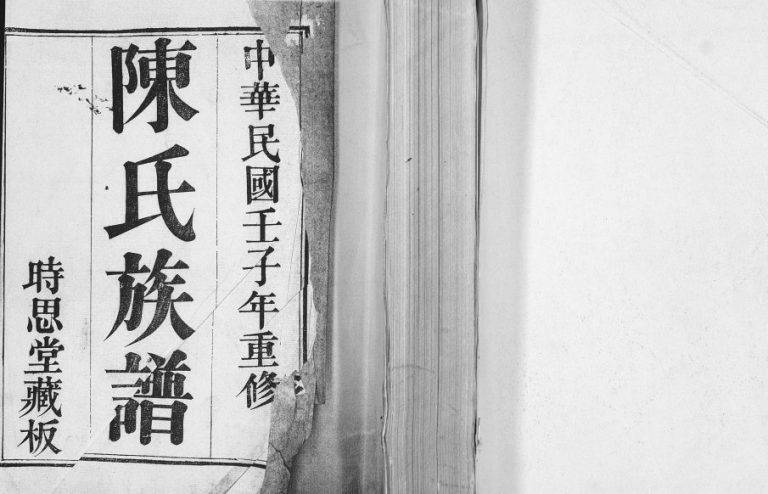 中華民國壬子年重修
陳氏族譜
時思堂藏板